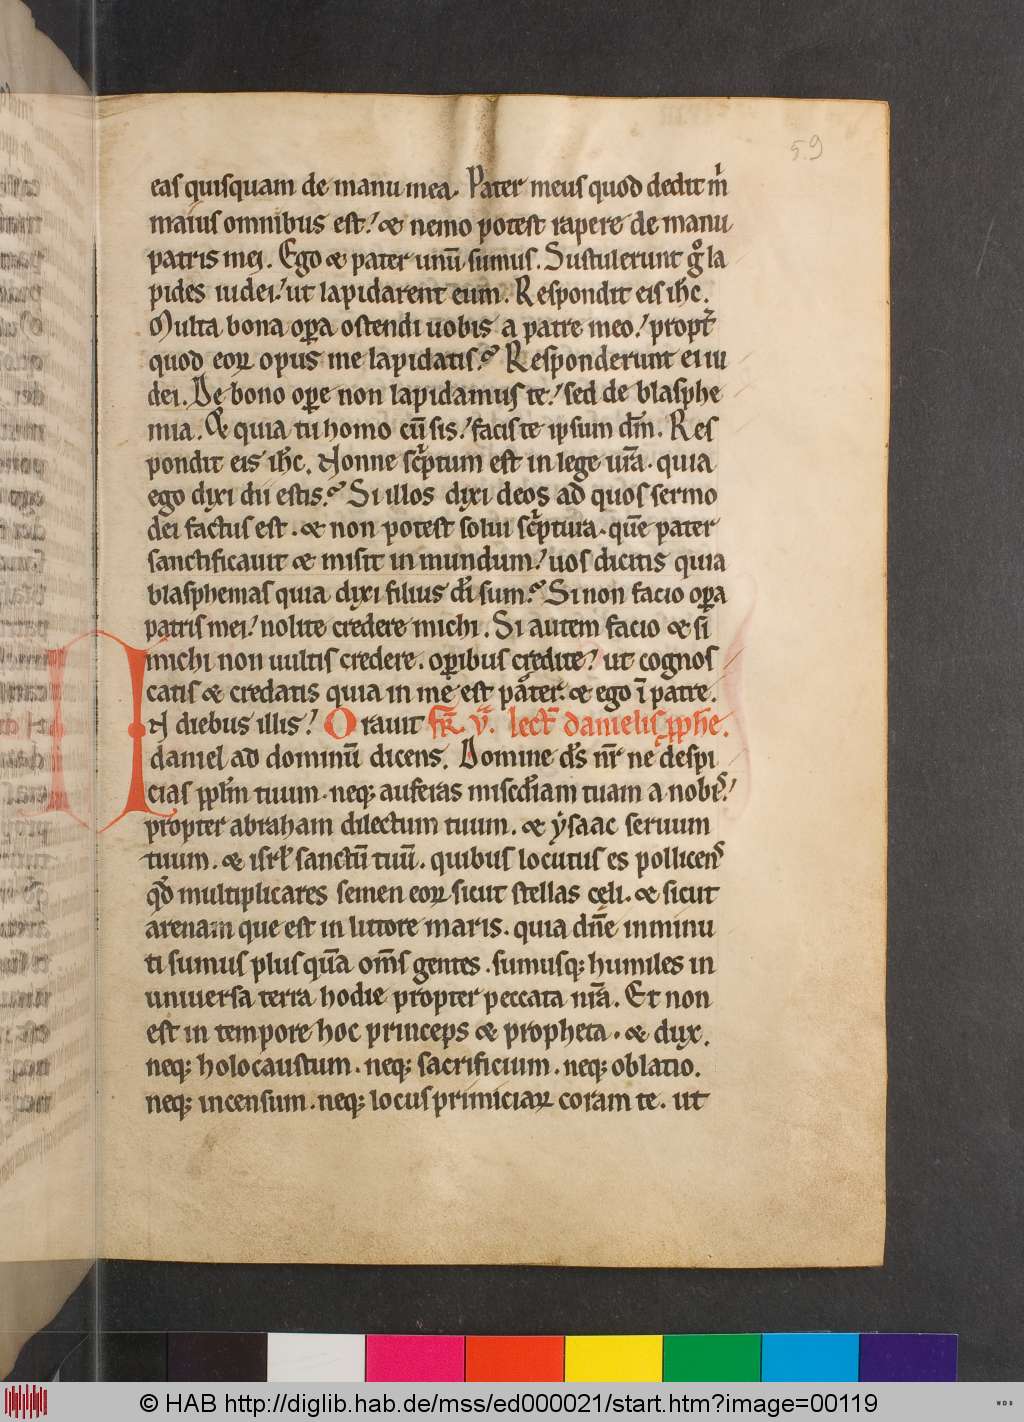 59
eas quisquam de manu mea. Pater meus quod dedit m̅
maius omnibus est! & nemo potest rapere de manu
patris mei. Ego & pater unū sumus. Sustulerunt gͦ la
pides iudei! ut lapidarent eum. Respondit eis ih̅c.
Multa bona oꝑa ostendi uobis a patre meo! propt̄
quod eoꝝ opus me lapidatis? Responderunt ei iu
dei. De bono oꝑe non lapidamus te! sed de blasphe
mia. & quia tu homo cū sis! facis te ipsum dm̅. Res
pondit eis ih̅c. Nonne scͥptum est in lege ur̅a. quia
ego dixi dii estis? Si illos dixi deos ad quos sermo
dei factus est. & non potest solui scͥptura. quē pater
sanctificauit & misit in mundum! uos dicitis quia
blasphemas quia dixi filius di̅ sum? Si non facio oꝑa
patris mei! nolite credere michi. Si autem facio & si
michi non uultis credere. oꝑibus credite! ut cognos
catis & credatis quia in me est pater. & ego ī patre.
IN diebus illis! Orauit fr̅. v̅. lect̅ danielis ꝓph̅e.
daniel ad dominū dicens. Domine ds̅ nr̅ ne despi
cias ppl̅m tuum. neqꝫ auferas misc̅diam tuam a nobis!
propter abraham dilectum tuum. & ysaac seruum
tuum. & isrl̅ sanctū tuū. quibus locutus es pollicens
qd̅ multiplicares semen eoꝝ sicut stellas cęli. & sicut
arenam que est in littore maris. quia dn̅e inminu
ti sumus plus quā om̅s gentes. sumusqꝫ humiles in
uniuersa terra hodie propter peccata nr̅a. Et non
est in tempore hoc princeps & propheta. & dux.
neqꝫ holocaustum. neqꝫ sacrificium. neqꝫ oblatio.
neqꝫ incensum. neqꝫ locus primiciaꝝ coram te. ut
© HAB http://diglib.hab.de/mss/ed000021/start.htm?image=00119